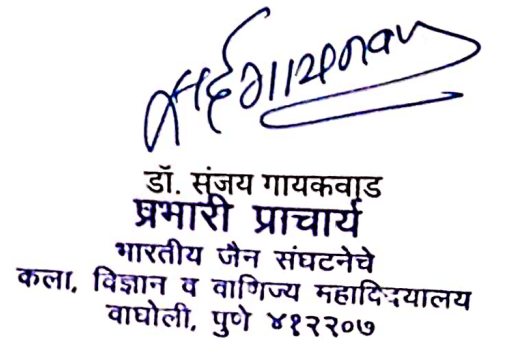 डॉ. संजय गायकवाड
प्रभारी प्राचार्य
भारतीय जैन संघटनेचे
कला, विज्ञान व वाणिज्य महाविद्यालय
वाघोली, पुणे ४१२२०७